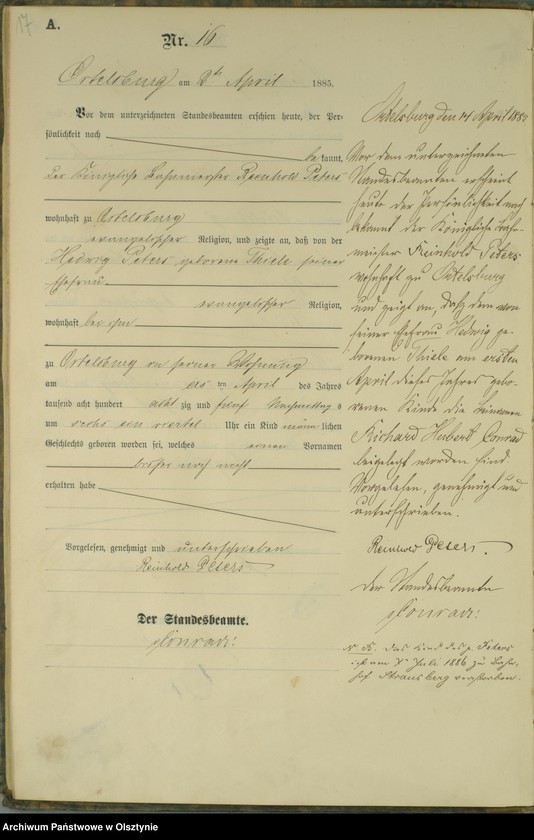 17
A.
Nr. 16
Ortelsburg am 2ten April 1885.
Vor dem unterzeichneten Standesbeamten erschien heute, der Per-
sönlichkeit nach
be kannt,
der Königliche Bahnmeister Reinhold Peters
wohnhaft zu Ortelsburg
evangelischer Religion, und zeigte an, daß von der
Hedwig Peters geborene Thiele seiner
Ehefrau
evangelischer Religion,
wohnhaft bei ihm
zu Ortelsburg in seiner Wohnung
am ersten April des Jahres
tausend acht hundert acht zig und fünf Nachmittags
um sechs ein viertel Uhr ein Kind männ lichen
Geschlechts geboren worden sei, welches einen Vornamen
bisher noch nicht
erhalten habe
Vorgelesen, genehmigt und unterschrieben
Reinhold Peters
Der Standesbeamte.
Conrad.
Ortelsburg den 14 April 1885
Vor dem unterzeichneten
Standesbeamten erscheint
heute der Persönlichkeit nach
bekannt der Königliche Bahn-
meister Reinhold Peters
wohnhaft zu Ortelsburg
und zeigt an, daß dem von
seiner Ehefrau Hedwig ge-
borenen Thiele am ersten
April dieses Jahres gebo-
renen Kinde die Vornamen
Richard Hubert Conrad
beigelegt worden sind
Vorgelesen, genehmigt und
unterschrieben.
Reinhold Peters.
Der Standesbeamte
Conrad.
Das Kind des p. Peters
ist am Juli 1886 zu Bahn-
hof Strausberg verstorben.
Archiwum Państwowe w Olsztynie